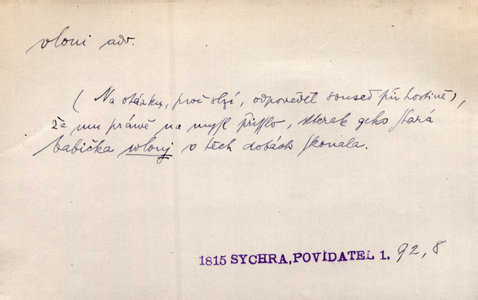 vloni adv.
(Na otázku, proč slzí, odpověděl soused při hostině),
že mu právě na mysl přisslo, kterak geho stará
babička wlonj v těch dobách skonala.
1815 SYCHRA, POVÍDATEL 1. 92, 8